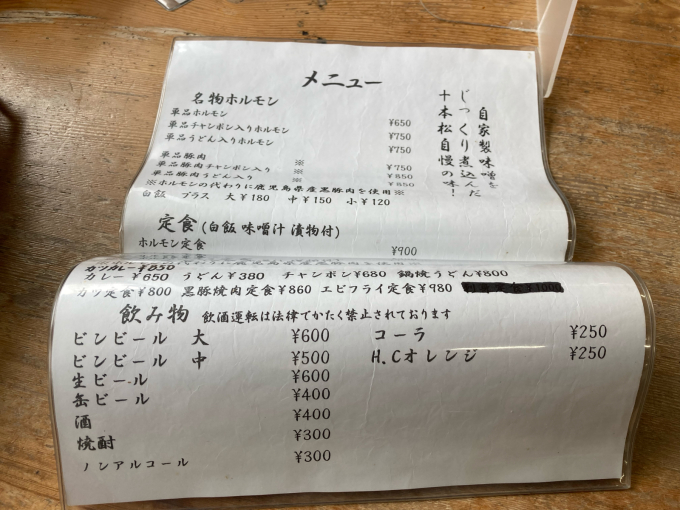 メニュー
自家製味噌を
じっくり煮込んだ
十本松自慢の味！
名物ホルモン
単品ホルモン ¥650
単品チャンポン入りホルモン ¥750
単品うどん入りホルモン ¥750
単品豚肉 ※ ¥750
単品豚肉チャンポン入り ※ ¥850
単品豚肉うどん入り ※ ¥850
※ホルモンの代わりに鹿児島県産黒豚肉を使用※
白飯 プラス 大¥180 中¥150 小¥120
定食(白飯 味噌汁 漬物付)
ホルモン定食 ¥900
カツカレー¥850
カレー¥650 うどん¥380 チャンポン¥680 鍋焼うどん¥800
カツ定食¥800 黒豚焼肉定食¥860 エビフライ定食¥980
飲み物 飲酒運転は法律でかたく禁止されております
ビンビール 大 ¥600 コーラ ¥250
ビンビール 中 ¥500 H.Cオレンジ ¥250
生ビール ¥600
缶ビール ¥400
酒 ¥400
焼酎 ¥300
ノンアルコール ¥300